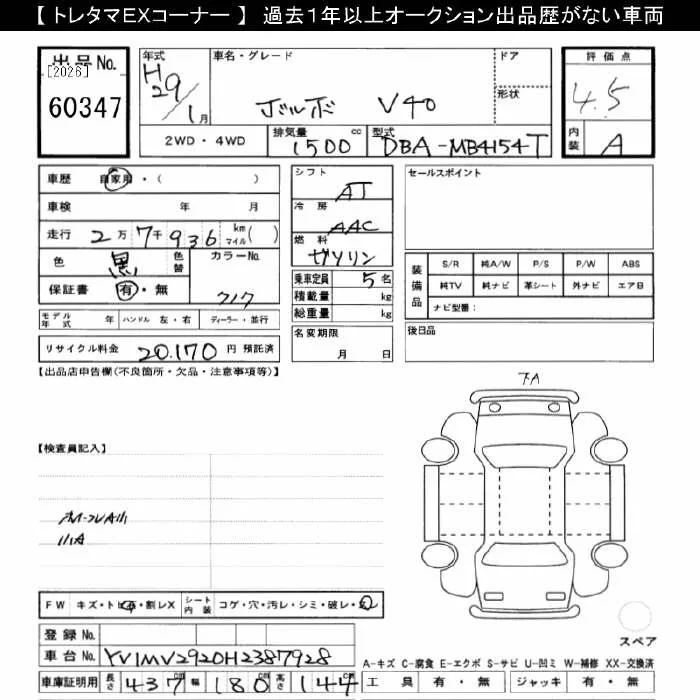 【 トレタマEXコーナー 】 過去1年以上オークション出品歴がない車両
出品 No.
[2026]
60347
年式 H29/1月
車名・グレード
ボルボ V40
ドア
形状
2WD・4WD
排気量 1500 cc
型式 DBA-MB4154T
評価点 4.5
内装 A
車歴 自家用・( )
車検 年 月
走行 2万7千936 km マイル( )
色 黒 色替
カラーNo. 717
保証書 有・無
モデル年式 年 ハンドル 左・右 ディーラー・並行
リサイクル料金 20,170 円 預託済
シフト AT
冷房 AAC
燃料 ガソリン
乗車定員 5 名
積載量 kg
総重量 kg
名変期限
月 日
セールスポイント
装備品
S/R 純A/W P/S P/W ABS
純TV 純ナビ 革シート 外ナビ エアB
ナビ型番:
後日品
【出品店申告欄(不良箇所・欠品・注意事項等)】
下A
【検査員記入】
小A
FW キズ・トビ石・割レX
シート内装 コゲ・穴・汚レ・シミ・破レ・
スペア
登録 No.
車台 No. YV1MV2920H2387928
車庫証明用 長さ 437 幅 180 高さ 144
A-キズ C-腐食 E-エクボ S-サビ U-凹ミ W-補修 XX-交換済
工具 有・無 ジャッキ 有・無